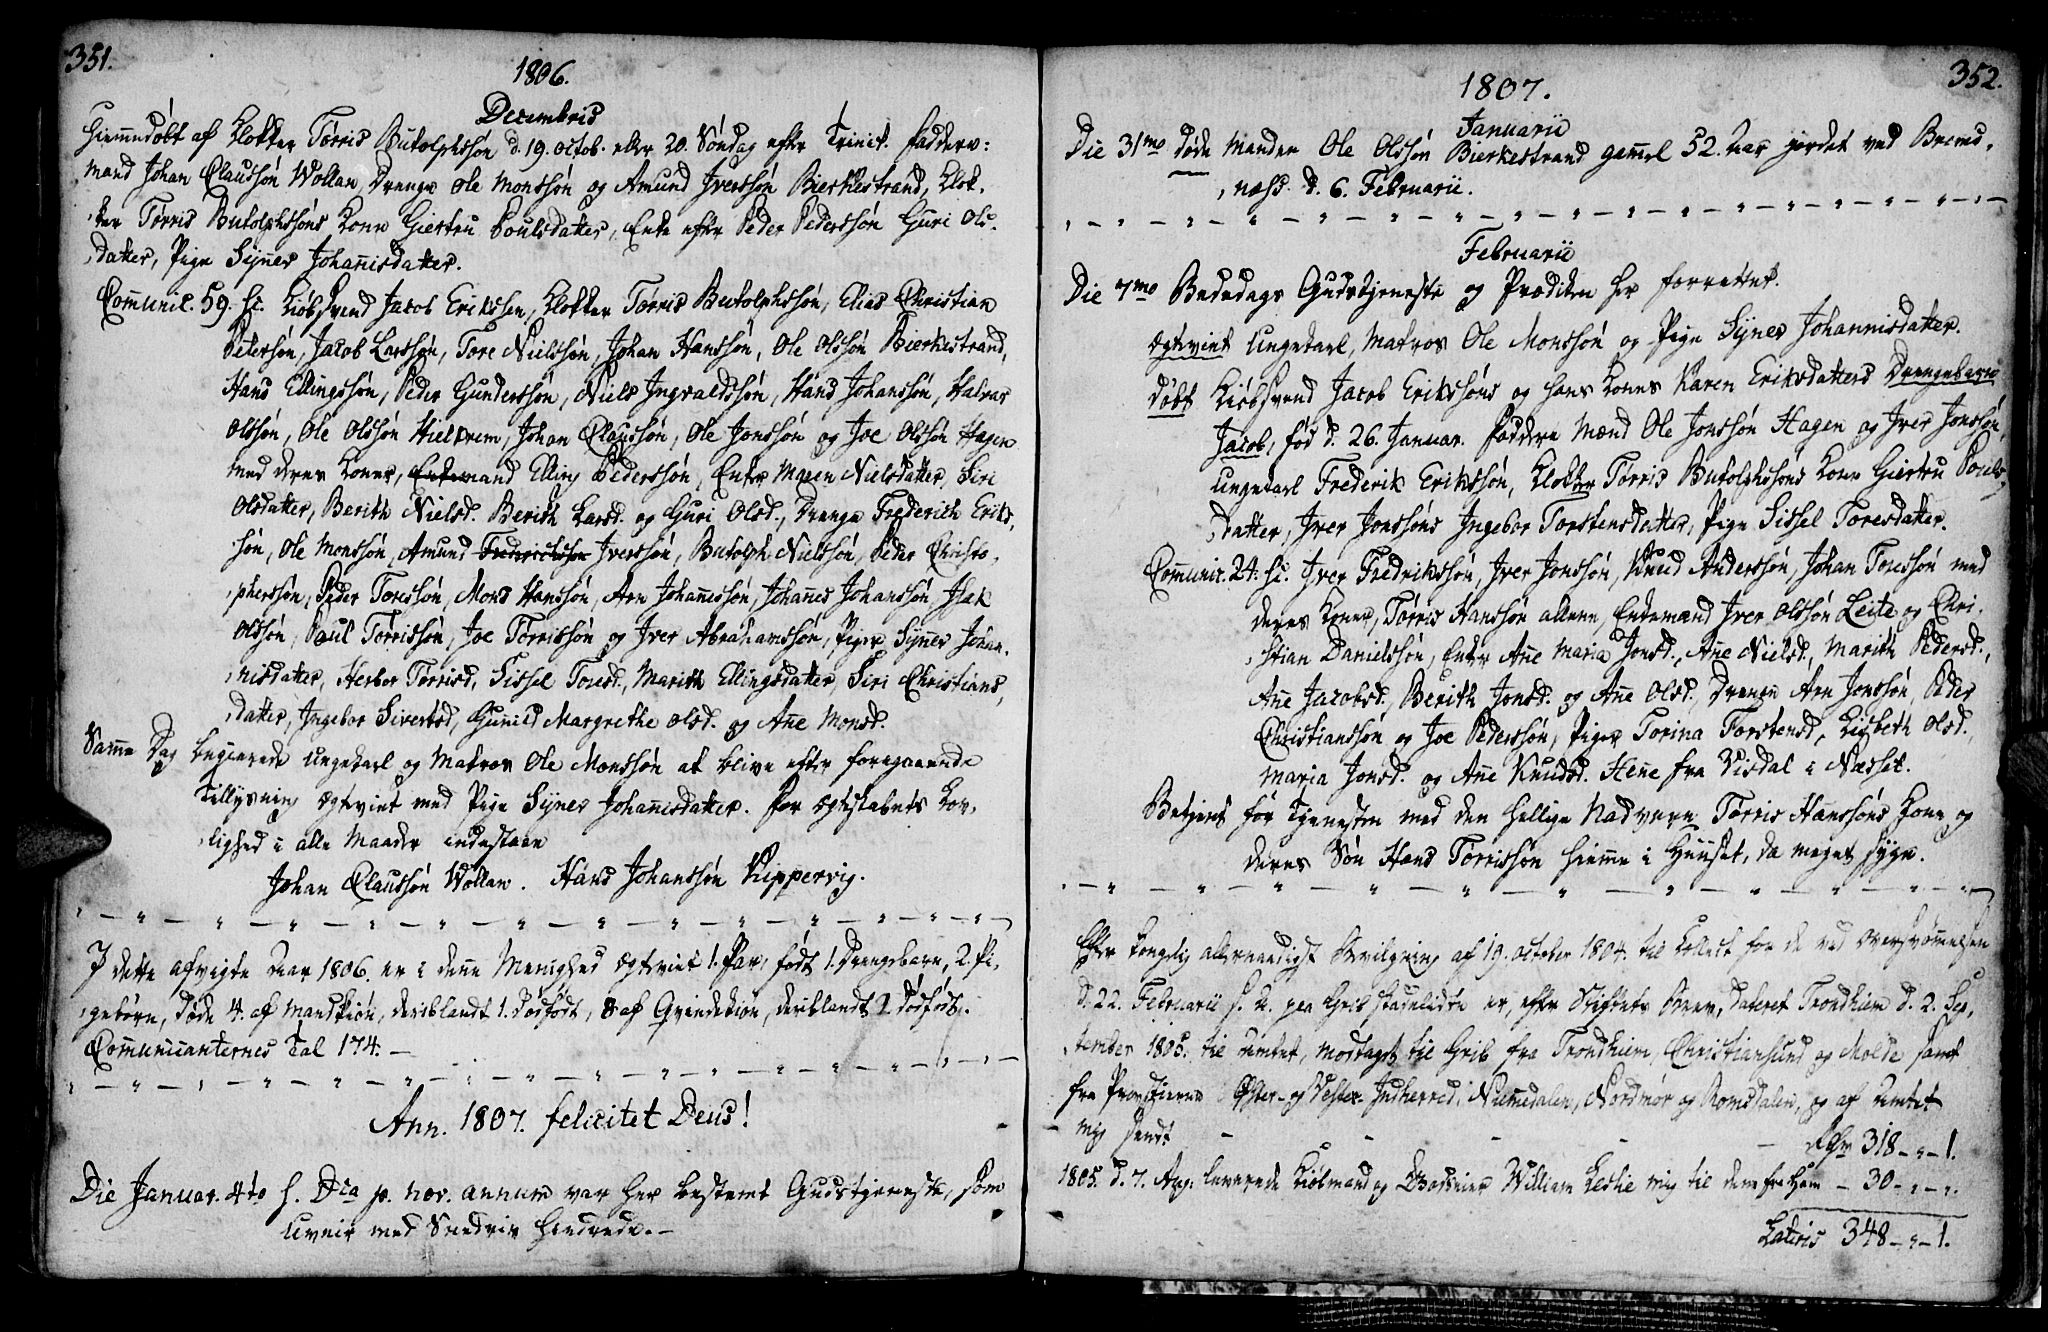 351.
1806.
Decembris
Hiemmedøbt af Klokker Tørris Butolphssøn d. 19. octob. eller 20. Søndag efter Trinit. Faddere:
Mænd Johan Claussøn Wollan, Drenge Ole Monssøn og Amund Iverssøn Bierkestrand, Klok-
ker Tørris Butolphssøns Kone Giertru Poulsdatter, Enke efter Peder Pederssøn Guri Ols-
datter, Pige Synev Johannisdatter.
Communic. 59. sc. Kiøbsvend Jacob Erikssen, Klokker Tørris Butolphssøn, Elias Christian
Petersøn, Jacob Larssøn, Tore Nielssøn, Johan Hanssøn, Ole Olssøn Bierkestrand,
Hans Ellingssøn, Peder Gunderssøn, Niels Ingvaldssøn, Hans Johanssøn, Halvor
Olssøn, Ole Olssøn Hielkrem, Johan Claussøn, Ole Jonssøn og Joe Olssøn Hagen
med deres Koner, Enkemand Elling Pederssøn, Enker Maren Nielsdatter, Siri
Olsdatter, Berith Nielsd. Berith Larsd. og Guri Olsd., Drenge Frederich Eriks-
søn, Ole Monssøn, Amund Fredrichssøn Iverssøn, Butolph Nielssøn, Peder Christo-
pherssøn, Peder Toressøn, Mons Hanssøn, Arn Johannessøn, Johannes Johanssøn, Isak
Olssøn, Paul Tørrissøn, Joe Tørrissøn og Iver Abrahamssøn, Piger Synev Johan-
nisdatter, Herbor Tørrisd, Sissel Toresd., Marith Ellingsdatter, Siri Christians-
datter, Ingebor Sivertsd, Gunild Margrethe Olsd. og Anne Monsd.
Samme Dag begierede Ungekarl og Matros Ole Monssøn at blive efter foregaaende
Tillysning ægteviet med Pige Synev Johannisdatter. For Ægteskabets Lov-
lighed i alle Maader indestaae
Johan Claussøn Wollan. Hans Johanssøn Kippervig.
I dette afvigte Aar 1806. er i denne Menighed ægteviet 1. Par, født 1. Drengebarn, 2. Pi-
gebørn, Døde 4. af Mandkiøn, deriblandt 1. Dødfødt, 8 af Qvindekiøn, deriblandt 2 Dødfødte.
Communicanternes Tal 174. —
Ann. 1807. felicitet Deus!
Die Januar. 4to s. Dca p. nov. annum var her bestemt Gudstjeneste, som
Uveir med Snedriv hindrede. —
352.
1807.
Januarii
Die 31mo døde Manden Ole Olssøn Bierkestrand gammel 52. Aar jordet ved Brems-
næss. d. 6. Februarii.
Februarii
Die 7mo Bededags Gudstjeneste og Prædiken her forrettet.
Ægteviet Ungekarl, Matros Ole Monssøn og Pige Synev Johannisdatter.
Døbt Kiøbsvend Jacob Erikssøns og hans Kones Karen Eriksdatters Drengebarn
Jacob, født d. 26. Januar. Faddere Mænd Ole Jonssøn Hagen og Iver Jonssøn,
Ungekarl Frederik Erikssøn, Klokker Tørris Butolphssøns Kone Giertru Pouls-
datter, Iver Jonssøns Ingebor Torstensdatter, Pige Sissel Toresdatter.
Communic. 24. sc. Iver Fredrikssøn, Iver Jonssøn, Knud Anderssøn, Johan Toressøn med
deres Koner, Tørris Hanssøn allene, Enkemand Iver Olssøn Leite og Chri-
stian Danielssøn, Enker Anne Maria Jonsd., Anne Nielsd., Marith Pedersd.,
Anne Jacobsd., Berith Jonsd. og Anne Olsd. Drenge Arn Jonssøn, Peder
Christianssøn og Joe Pederssøn, Piger Torina Torstensd, Lisbeth Olsd.
Maria Jonsd. og Anne Knudsd. Henne fra Visdal i Næsset.
Betjent før Tjenesten med den hellige Nadvere Tørris Hanssøns Kone og
deres Søn Hans Tørrissøn hiemme i Huuset, da meget syge.
Efter Kongelig allernaadigst Bevilgning af 19. october 1804. til Collect for de ved Oversvømmelsen
d. 22. Februarii s. A. paa Grib skadelidte er, efter Stiftets Brev, dateret Trondhiem d. 2. Sep-
tember 1805. til Amtet, modtaget til Grib fra Trondhiem, Christiansund og Molde samt
fra Provstierne Øster- og Vester-Indherred, Nummedalen, Nordmør og Romsdalen, og af Amtet
mig sendt — — — — — Rdr 318 - „ - 1.
1805. d. 7. Aug. leverede Kiøbmand og William Leslie mig til dem fra Ham — 30 - „ - „.
Lateris 348 - „ - 1.